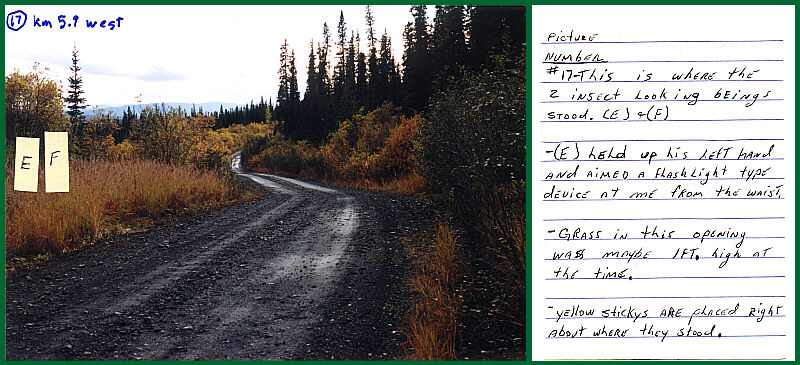 17 km 5.9 west
E F
Picture
Number
#17-This is where the
2 insect Looking beings
stood. (E) & (F)
-(E) held up his left hand
and aimed a flashlight type
device at me from the waist.
-Grass in this opening
was maybe 1ft. high at
the time.
-yellow stickys are placed right
about where they stood.